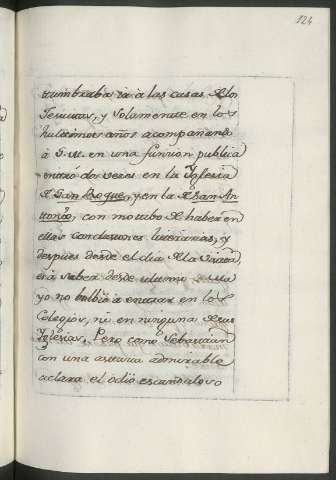 124
tumbraba ir à las casas de los
Jesuitas, y Solamente en los
hultimos años acompañando
à S. M. en una funcion publica
entrò dos veces en la Iglesia
de San Roque, y en la de San An-
tonio, con motibo de haber en
ellas conclusiones literarias, y
despues desde el dia de la
es à saber desde ultimo de
yo no bolbiò à entrar en los
Colegios, ni en ninguna de sus
Iglesias. Pero como Sebastian
con una astucia admirable
aclara el odio escandaloso